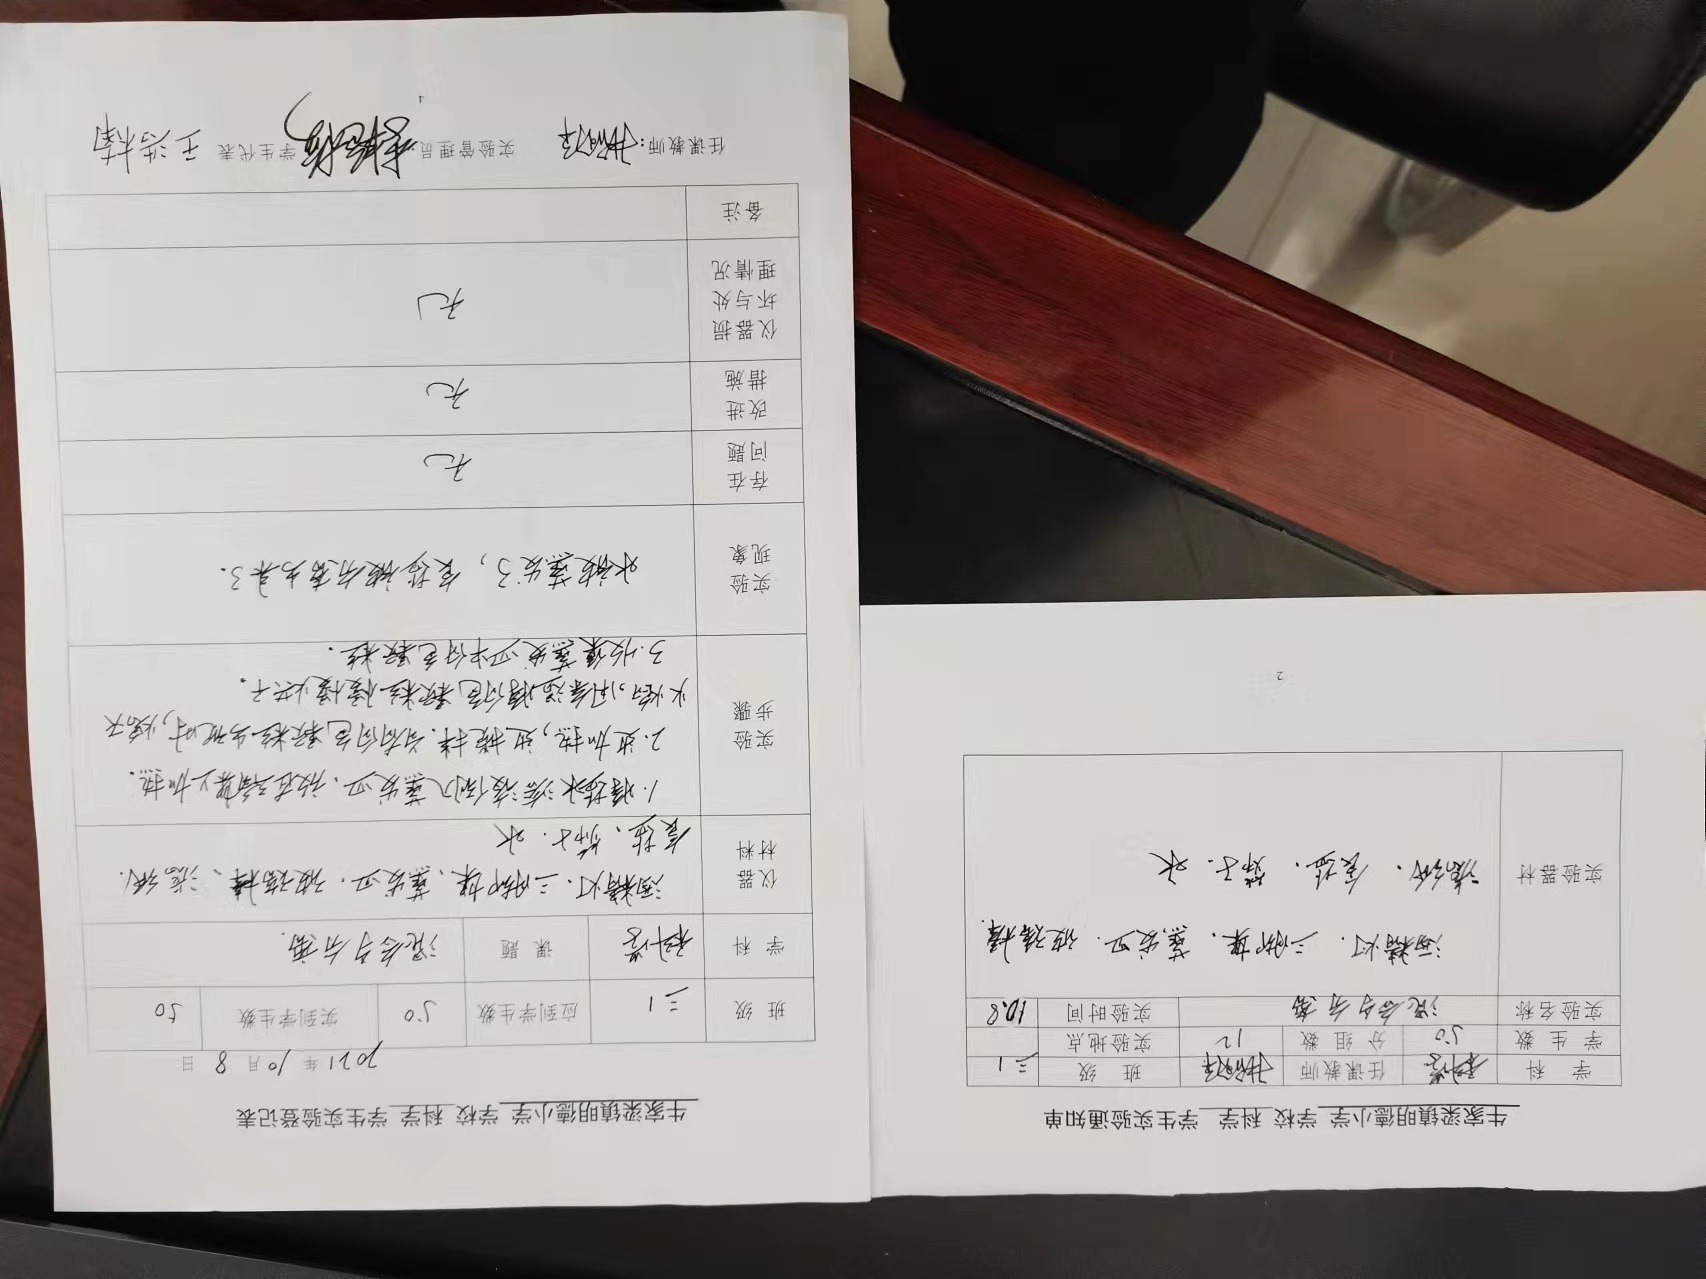 牛家梁镇明德小学 学校 科学 学生实验通知单
学 科 科学 任课教师 班 级 三1
学 生 数 50 分 组 数 12 实验地点
实验名称 混合与分离 实验时间 10.8
实验器材 酒精灯、三脚架、蒸发皿、玻璃棒、
滤纸、食盐、筛子、水
2
牛家梁镇明德小学 学校 科学 学生实验登记表
2021 年 10 月 8 日
班 级 三1 应到学生数 50 实到学生数 50
学 科 科学 课 题 混合与分离
仪器材料 酒精灯、三脚架、蒸发皿、玻璃棒、滤纸、
食盐、筛子、水
实验步骤 1.将盐水溶液倒入蒸发皿、放在三脚架上加热.
2.边加热,边搅拌.当有白色颗粒出现时,熄灭
火焰,用余温将白色颗粒慢慢烘干.
3.收集蒸发皿中白色颗粒.
实验现象 水被蒸发了,食盐被分离出来了.
存在问题 无
改进措施 无
仪器损坏与处理情况 无
备注
任课教师: 实验管理员: 学生代表 王浩楠